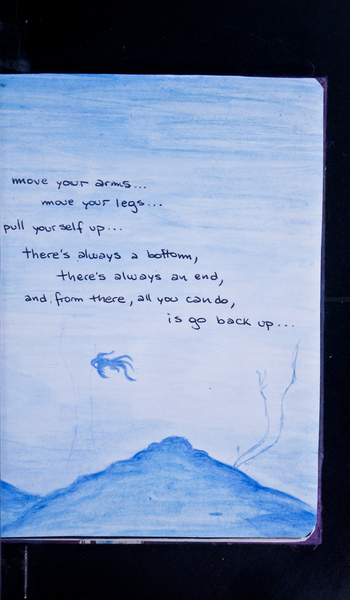 move your arms...
move your legs...
pull yourself up...
there's always a bottom,
there's always an end,
and from there, all you can do,
is go back up...